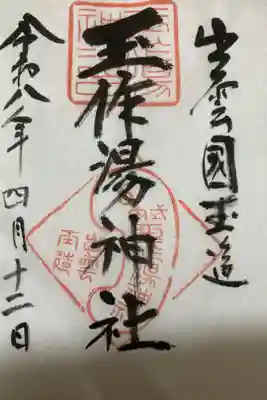 出雲國玉造
玉作湯神社
令和八年四月十二日